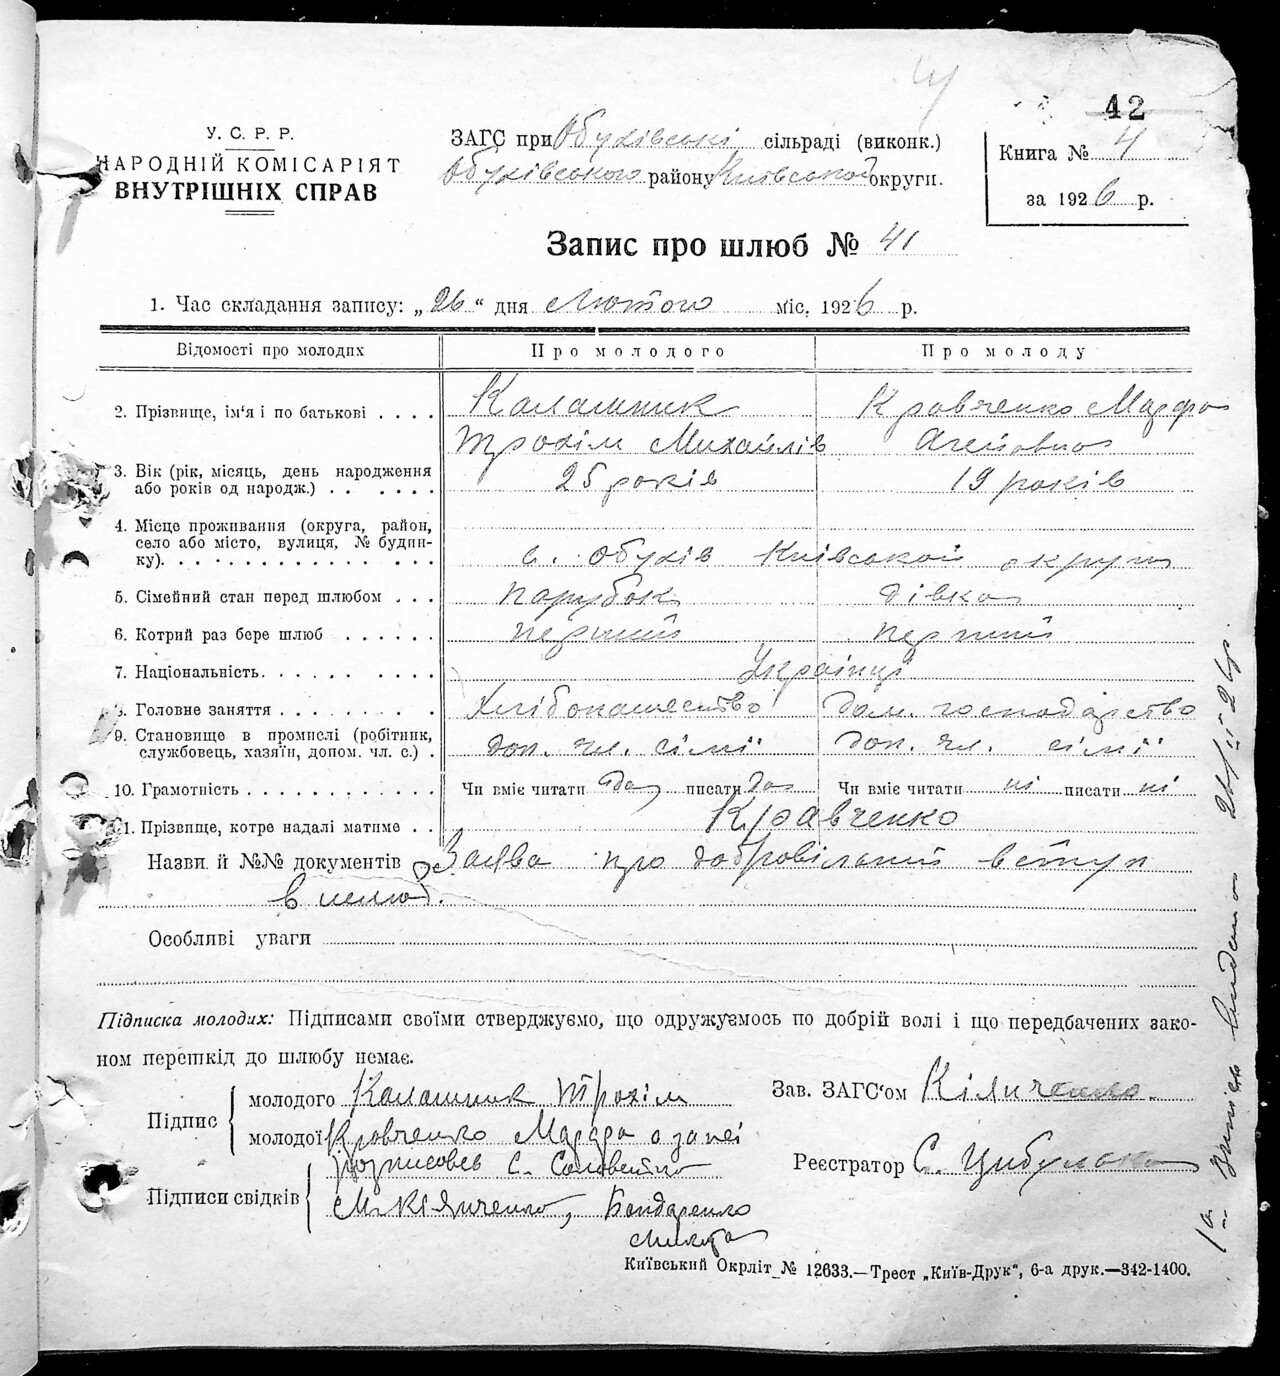 42
У. С. Р. Р.
НАРОДНІЙ КОМІСАРІЯТ
ВНУТРІШНІХ СПРАВ
ЗАГС при Обухівські сільраді (виконк.)
Обухівського району Київської округи.
Книга № 4
за 1926 р.
Запис про шлюб № 41
1. Час складання запису: „26“ дня Лютого міс. 1926 р.
Відомості про молодих Про молодого Про молоду
2. Прізвище, ім‘я і по батькові . . . . Калашник Кравченко Марфа
Трохім Михайлів
3. Вік (рік, місяць, день народження
або років од народж.) . . . . . . 25 років 19 років
4. Місце проживання (округа, район,
село або місто, вулиця, № будин-
ку). . . . . . . . . . . . . . . . с. Обухів Київської округи
5. Сімейний стан перед шлюбом . . . парубок дівка
6. Котрий раз бере шлюб . . . . . . перший перший
7. Національність. . . . . . . . . . Українці
8. Головне заняття . . . . . . . . . Хлібопашество дом. господарство
9. Становище в промислі (робітник,
службовець, хазяїн, допом. чл. с.) . доп. чл. сімії доп. чл. сімії
10. Грамотність . . . . . . . . . . . . Чи вміє читати да писати да Чи вміє читати ні писати ні
11. Прізвище, котре надалі матиме . . Кравченко
Назви й №№ документів Заява про добровільний вступ
в шлюб.
Особливі уваги
Підписка молодих: Підписами своїми стверджуємо, що одружуємось по добрій волі і що передбачених зако-
ном перешкід до шлюбу немає.
Підпис
молодого Калашник Трохім
молодої Кравченко Марфа а за неї
розписовсь С.
Підписи свідків
М. Кіяниченко, Бондаренко
Микита
Зав. ЗАГС‘ом Кіяниченко
Реєстратор С. Цибулько
Київський Окрліт № 12633.—Трест „Київ-Друк“, 6-а друк.—342-1400.